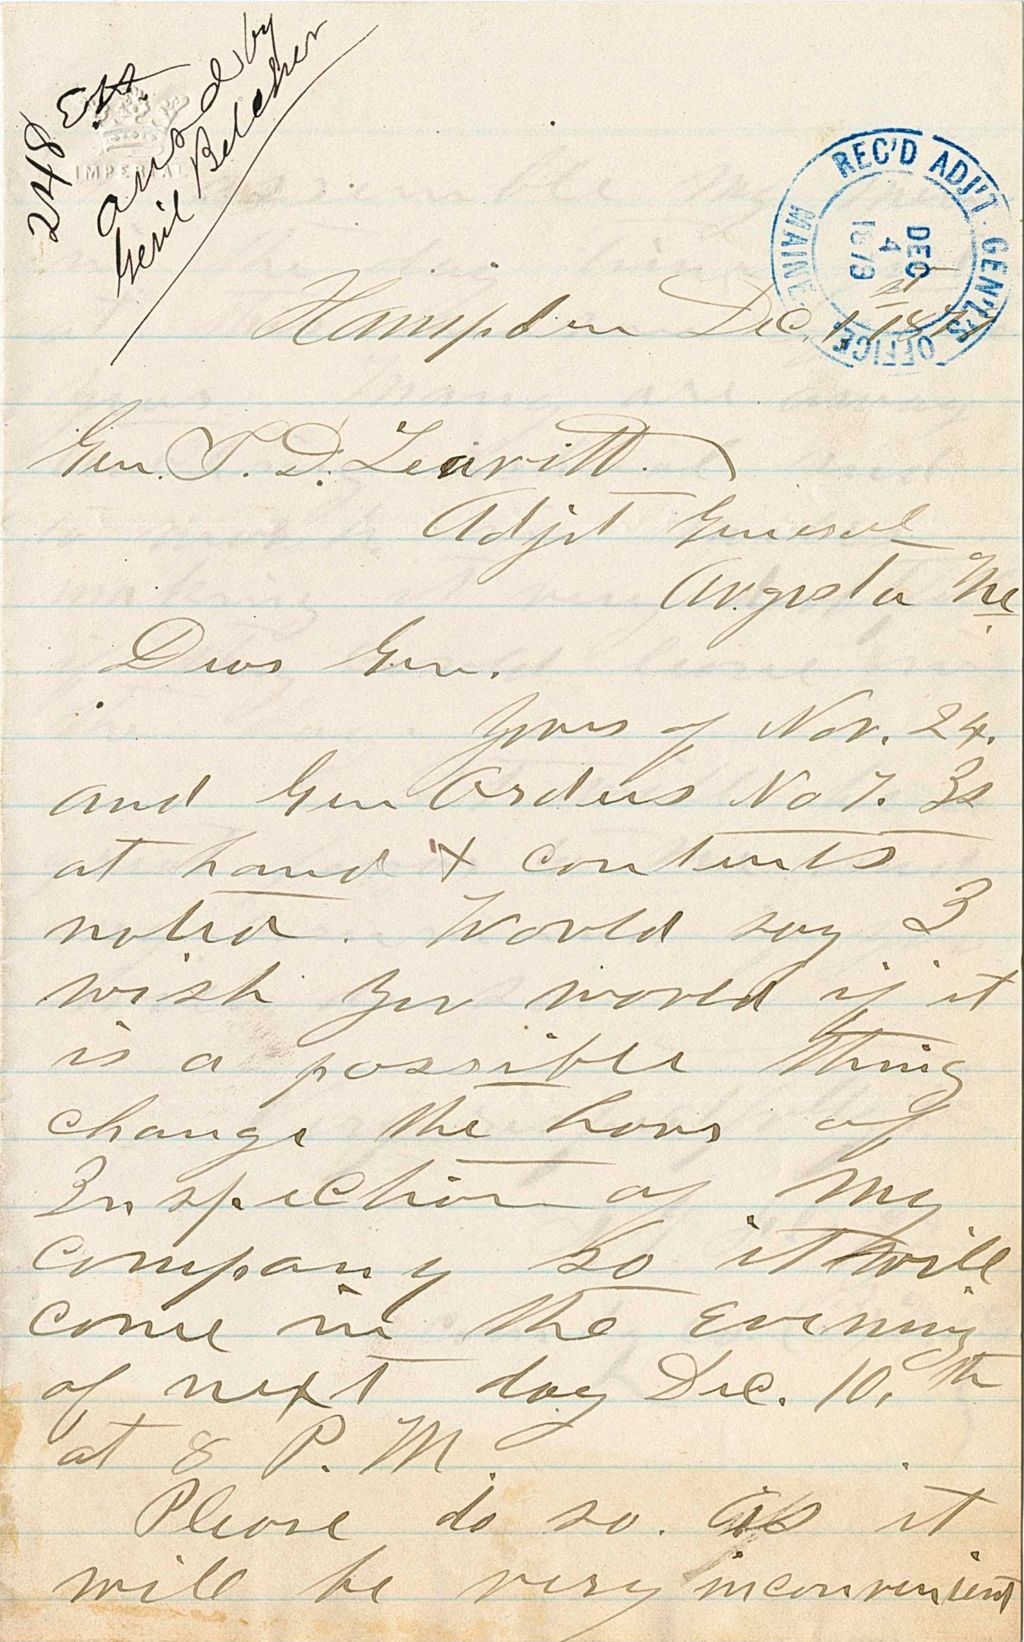 248 Ex.
ansd by
Genl Belcher
IMPERIAL
REC'D ADJ'T GEN'L'S OFFICE
MAINE
DEC
4
1879
Hampden Dec 1st
Gen. S. D. Leavitt.
Adjt General
Augusta Me
Dear Gen.
Yours of Nov. 24.
and Gen Orders No 7. Is
at hand & contents
noted. Would say I
wish you would if it
is a possible thing
change the hour of
Inspection of my
company so it will
come in the evening
of next day Dec. 10,th
at 8 P. M.
Please do so. as it
will be very inconvenient